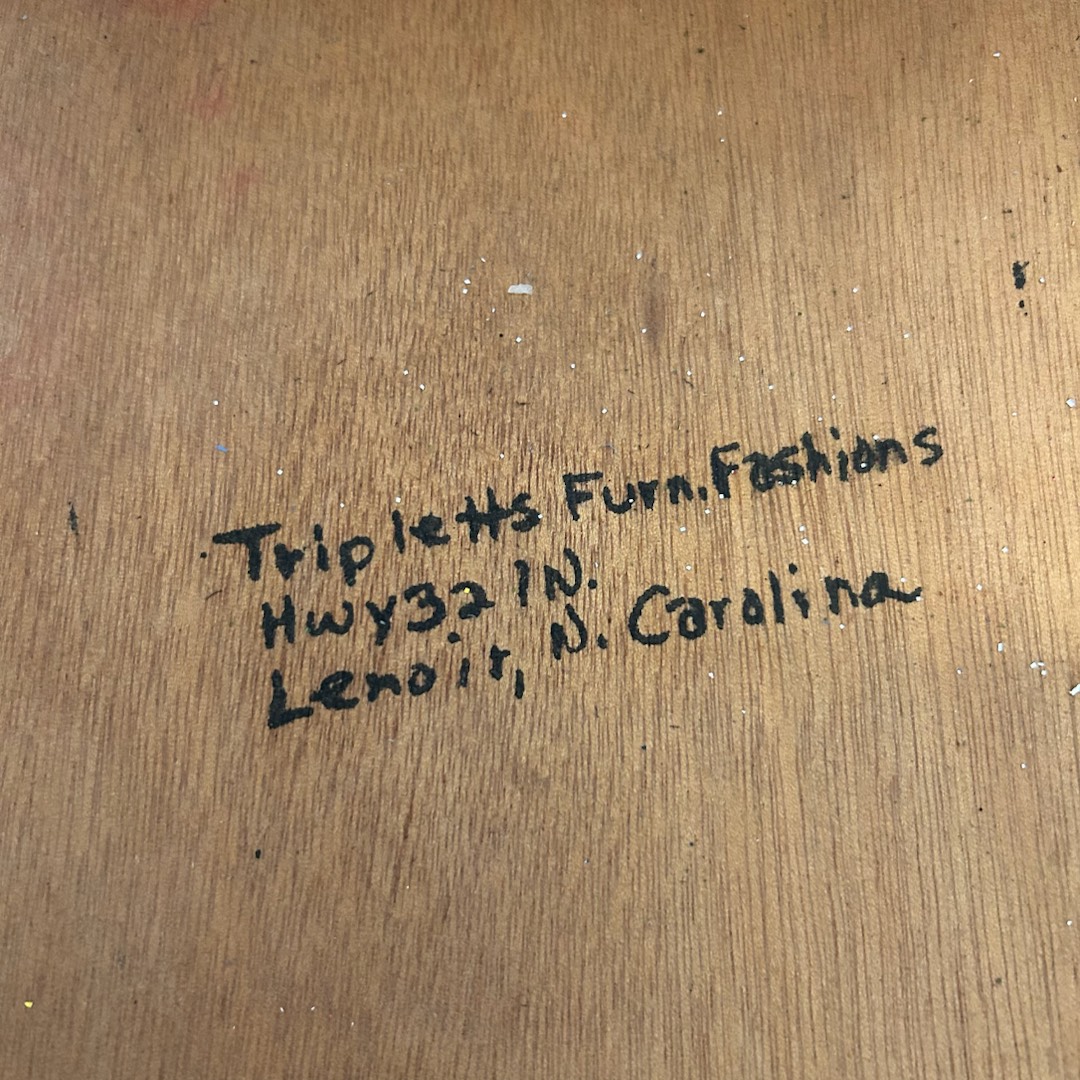 Tripletts Furn. Fashions
Hwy 321 N.
Lenoir, N. Carolina